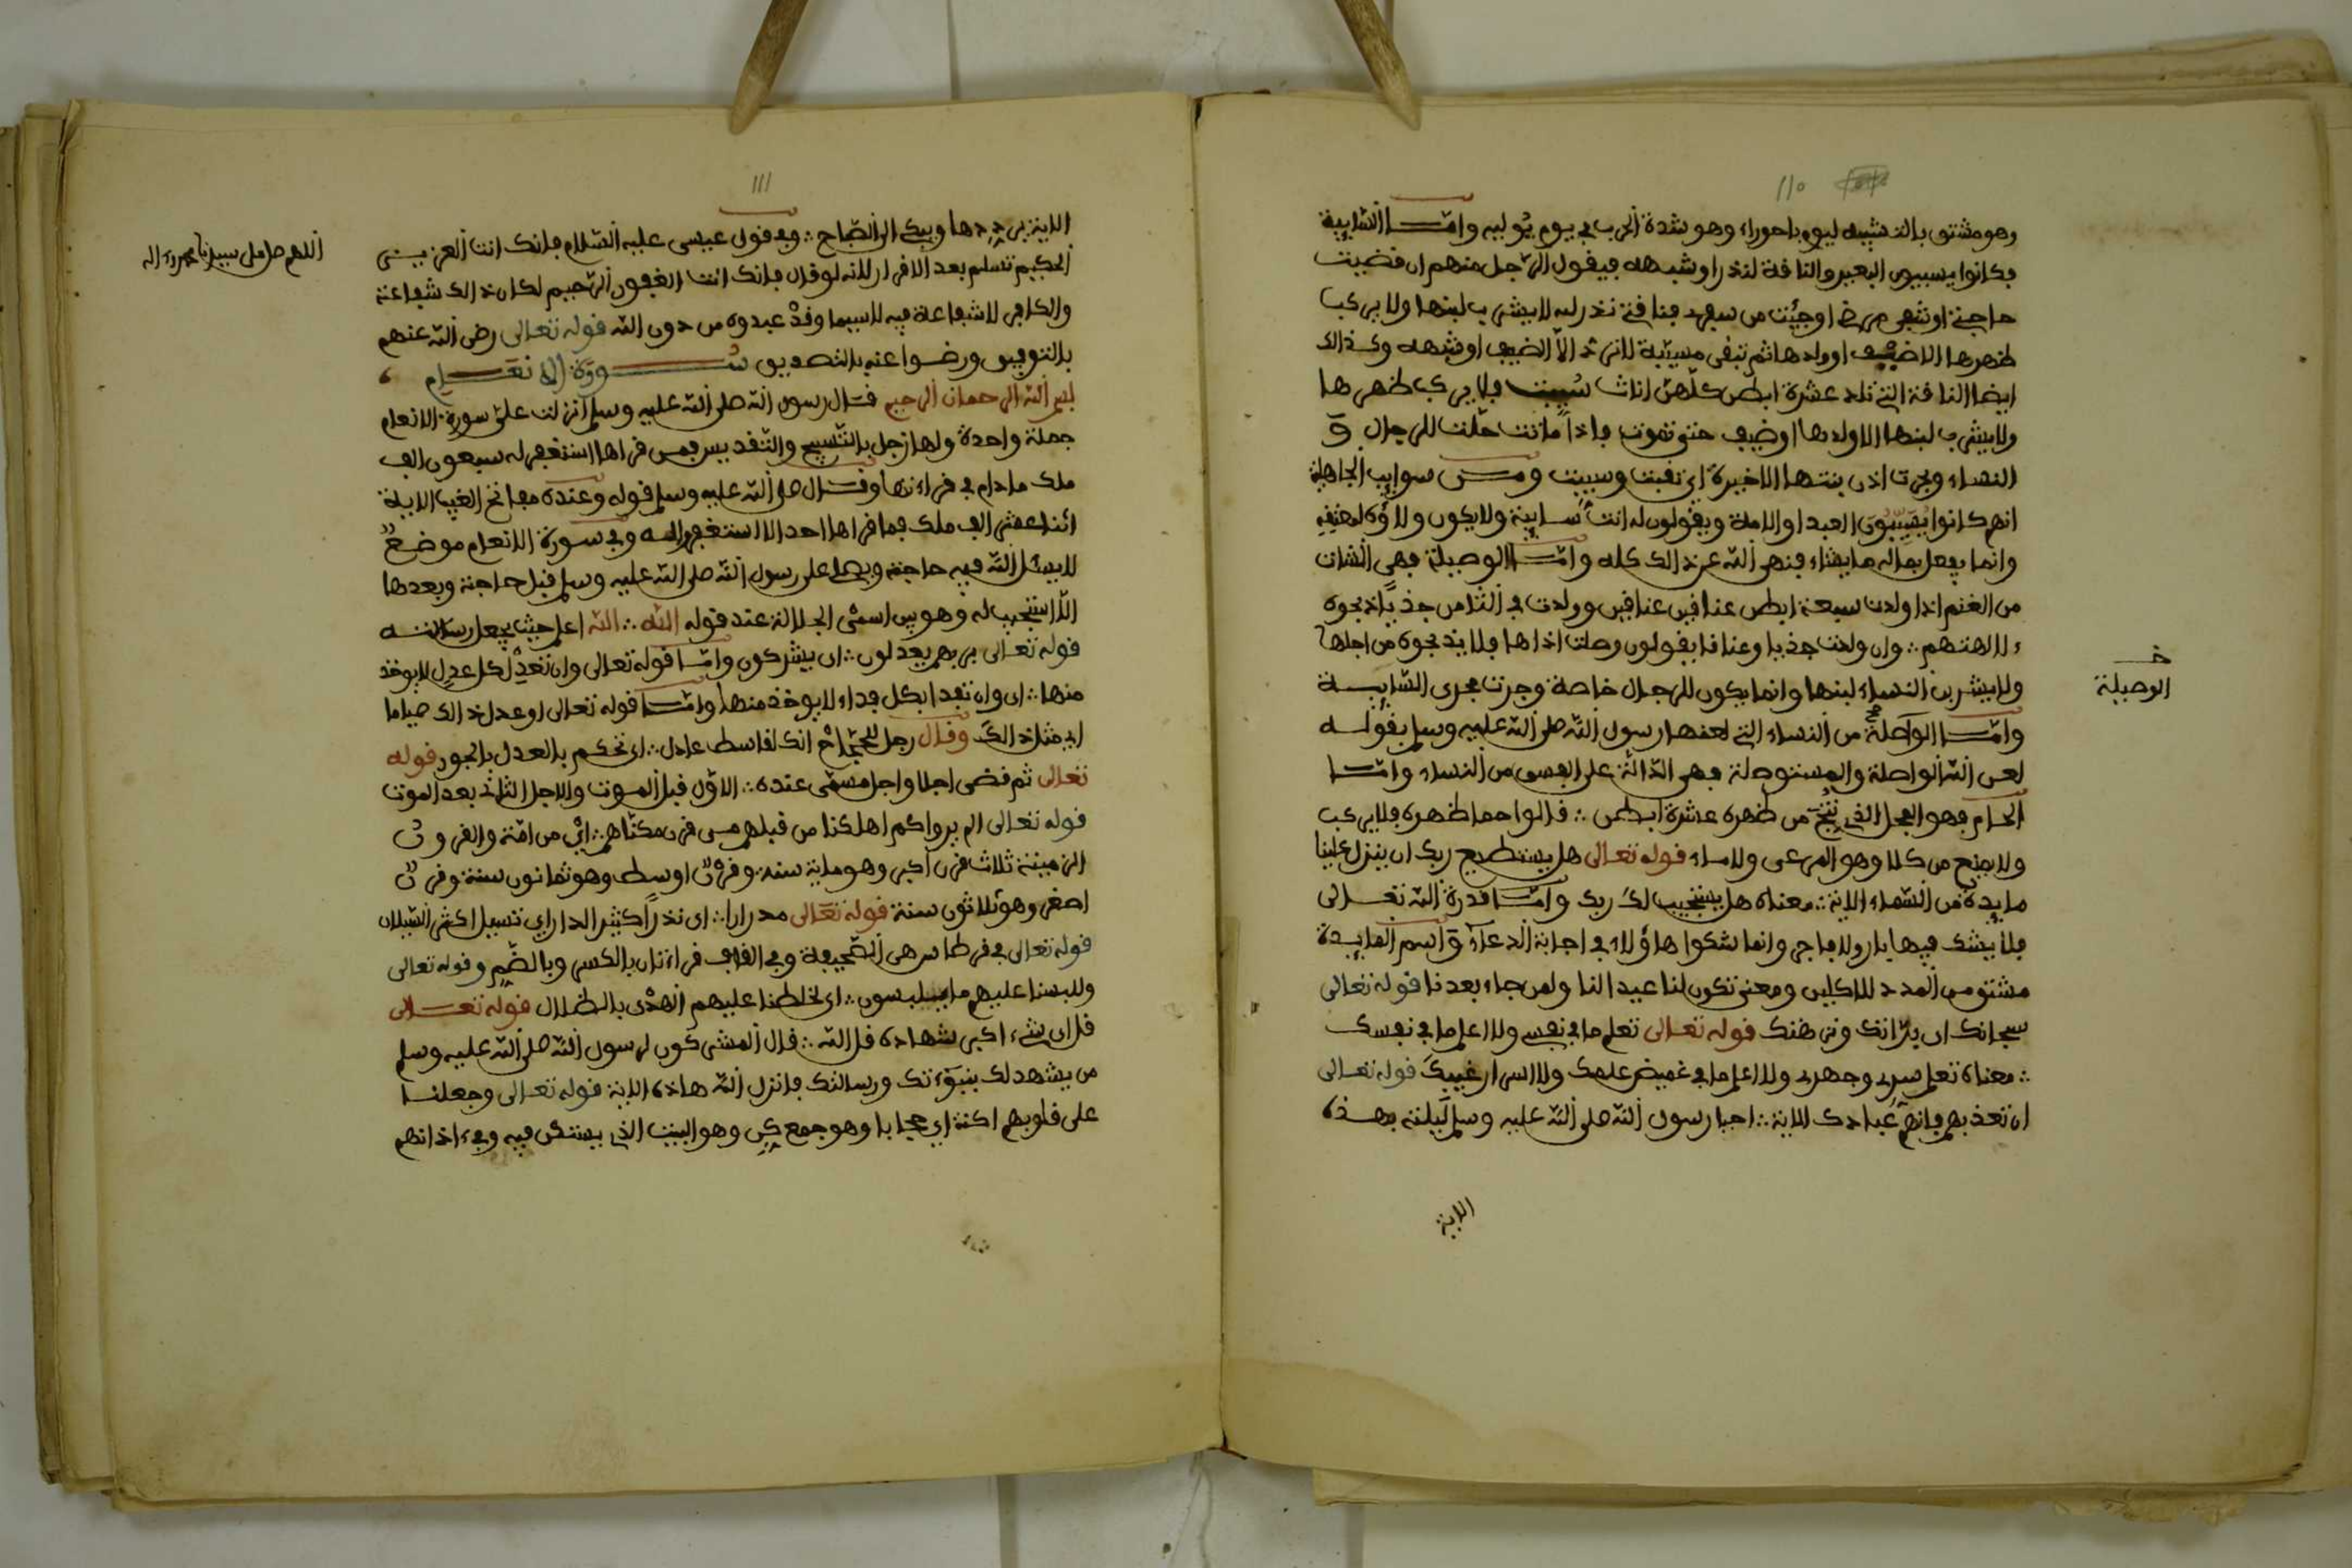 110
وهو مشتق بالتشبيه ليوم باحوراء وهو شدة الحر في يوم يوليه واما السايبة
فكانوا يسيبون البعير والنافة لنذر او شبهه فيقول الرجل منهم ان قضيت
حاجتي او شفي مرضي او جيت من سفري فنافتي نذر لله لا يشرب لبنها ولا يركب
ظهرها الا ضيف او ولدها ثم تبقى مسيبة لا ترد الا لضيف او شبهه وكذالك
ايضا النافة التي تلد عشرة ابطن كلهن اناثا سيبت فلا يركب ظهرها
ولا يشرب لبنها الا ولدها او ضيف حتى تموت فاذا ماتت حلت للرجال و
النساء وبحرت اذن بنتها الاخيرة اي نقبت وسيبت ومن سوايب الجاهلية
انهم كانوا يسيبون العبد او الامة ويقولون له انت سايبة ولا يكون ولاؤه لمعتقه
وانما يفعل بماله ما يشاء فنهى الله عن ذالك كله واما الوصيلة فهي الشات
من الغنم اذا ولدت سبعة ابطن عنافين عنافين وولدت في الثامن جذيا ذبحوه
ء لالهتهم وان ولدت جذيا وعنافا يقولون وصلت اخاها فلا يذبحوه من اجلها
ولا يشربن النساء لبنها وانما يكون للرجال خاصة وجرت مجرى السايبة
واما الواصلة من النساء التي لعنها رسول الله صلى الله عليه وسلم بقوله
لعن الله الواصلة والمستوصلة فهي الدالة على الفسق من النساء واما
الحام فهو الفحل الذي ينتج من ظهره عشرة ابطن قالوا حما ظهره فلا يركب
ولا يمنع من كلا وهو المرعى ولا ماء قوله تعالى هل يستطيع ربك ان ينزل علينا
مايدة من السماء الاية معناه هل يستجيب لك ربك واما قدرة الله تعالى
فلا يشك فيها بار ولا فاجر وانما شكوا هاؤلاء في اجابة الدعاء و اسم المايدة
مشتق من المدد للاكلين ومعنى تكون لنا عيدا لنا ولمن جاء بعدنا قوله تعالى
سبحانك اي برانك ونزهتك قوله تعالى تعلم ما في نفسي ولا اعلم ما في نفسك
معناه تعلم سري وجهري ولا اعلم ما في غميض علمك ولا اسرار غيبك قوله تعالى
ان تعذبهم فانهم عبادك الاية احيا رسول الله صلى الله عليه وسلم ليلته بهذه
الاية
خـ
الوصيلة
111
الاية يرددها ويبكي الى الصباح وفي قول عيسى عليه السلام فانك انت العزيز
الحكيم تسليم بعد الاقرار لانه لو قال فانك انت الغفور الرحيم لكان ذالك شفاعة
والكافر لا شفاعة فيه لا سيما وقد عبدوه من دون الله قوله تعالى رضي الله عنهم
بالتوفيق ورضوا عنه بالتصديق سورة الانعام
بسم الله الرحمان الرحيم قال رسول الله صلى الله عليه وسلم انزلت علي سورة الانعام
جملة واحدة ولها زجل بالتسبيح والتقديس فمن قراها استغفر له سبعون الف
ملك ما دام في قراءتها وقال صلى الله عليه وسلم قوله وعنده مفاتح الغيب الاية
اثنا عشر الف ملك فما قراها احد الا استغفروا له وفي سورة الانعام موضع
لا يسئل الله فيه حاجة ويصلي على رسول الله صلى الله عليه وسلم قبل حاجته وبعدها
الا استجيب له وهو بين اسمي الجلالة عند قوله الله الله اعلم حيث يجعل رسالته
قوله تعالى بربهم يعدلون اي يشركون واما قوله تعالى وان تعدل كل عدل لا يوخذ
منها اي وان تفدا بكل فداء لا يوخذ منها واما قوله تعالى او عدل ذالك صياما
اي مثل ذالك وقال رجل للحجاج انك لقاسط عادل اي تحكم بالعدل بالجور قوله
تعالى ثم قضى اجلا واجل مسمى عنده الاول قبل الموت والاجل الثاني بعد الموت
قوله تعالى الم يروا كم اهلكنا من قبلهم من قرن مكناهم اي من امة والقرون
الزمنية ثلاث قرن اكبر وهو ماية سنة وقرن اوسط وهو ثمانون سنة وقرن
اصغر وهو ثلاثون سنة قوله تعالى مدرارا اي تدرا كثير الدار اي تسيل اكثر السيلان
قوله تعالى في قرطاس هي الصحيفة وفي القاف قراءتان بالكسر وبالضم وقوله تعالى
وللبسنا عليهم ما يلبسون اي لخلطنا عليهم الهدى بالظلال قوله تعالى
قل اي شيء اكبر شهادة قل الله قال المشركون لرسول الله صلى الله عليه وسلم
من يشهد لك بنبوءتك ورسالتك فانزل الله هاذه الاية قوله تعالى وجعلنا
على قلوبهم اكنة اي حجابا وهو جمع كن وهو البيت الذي يستكن فيه وفيء اذانهم
اللهم صل على سيدنا محمد وءاله